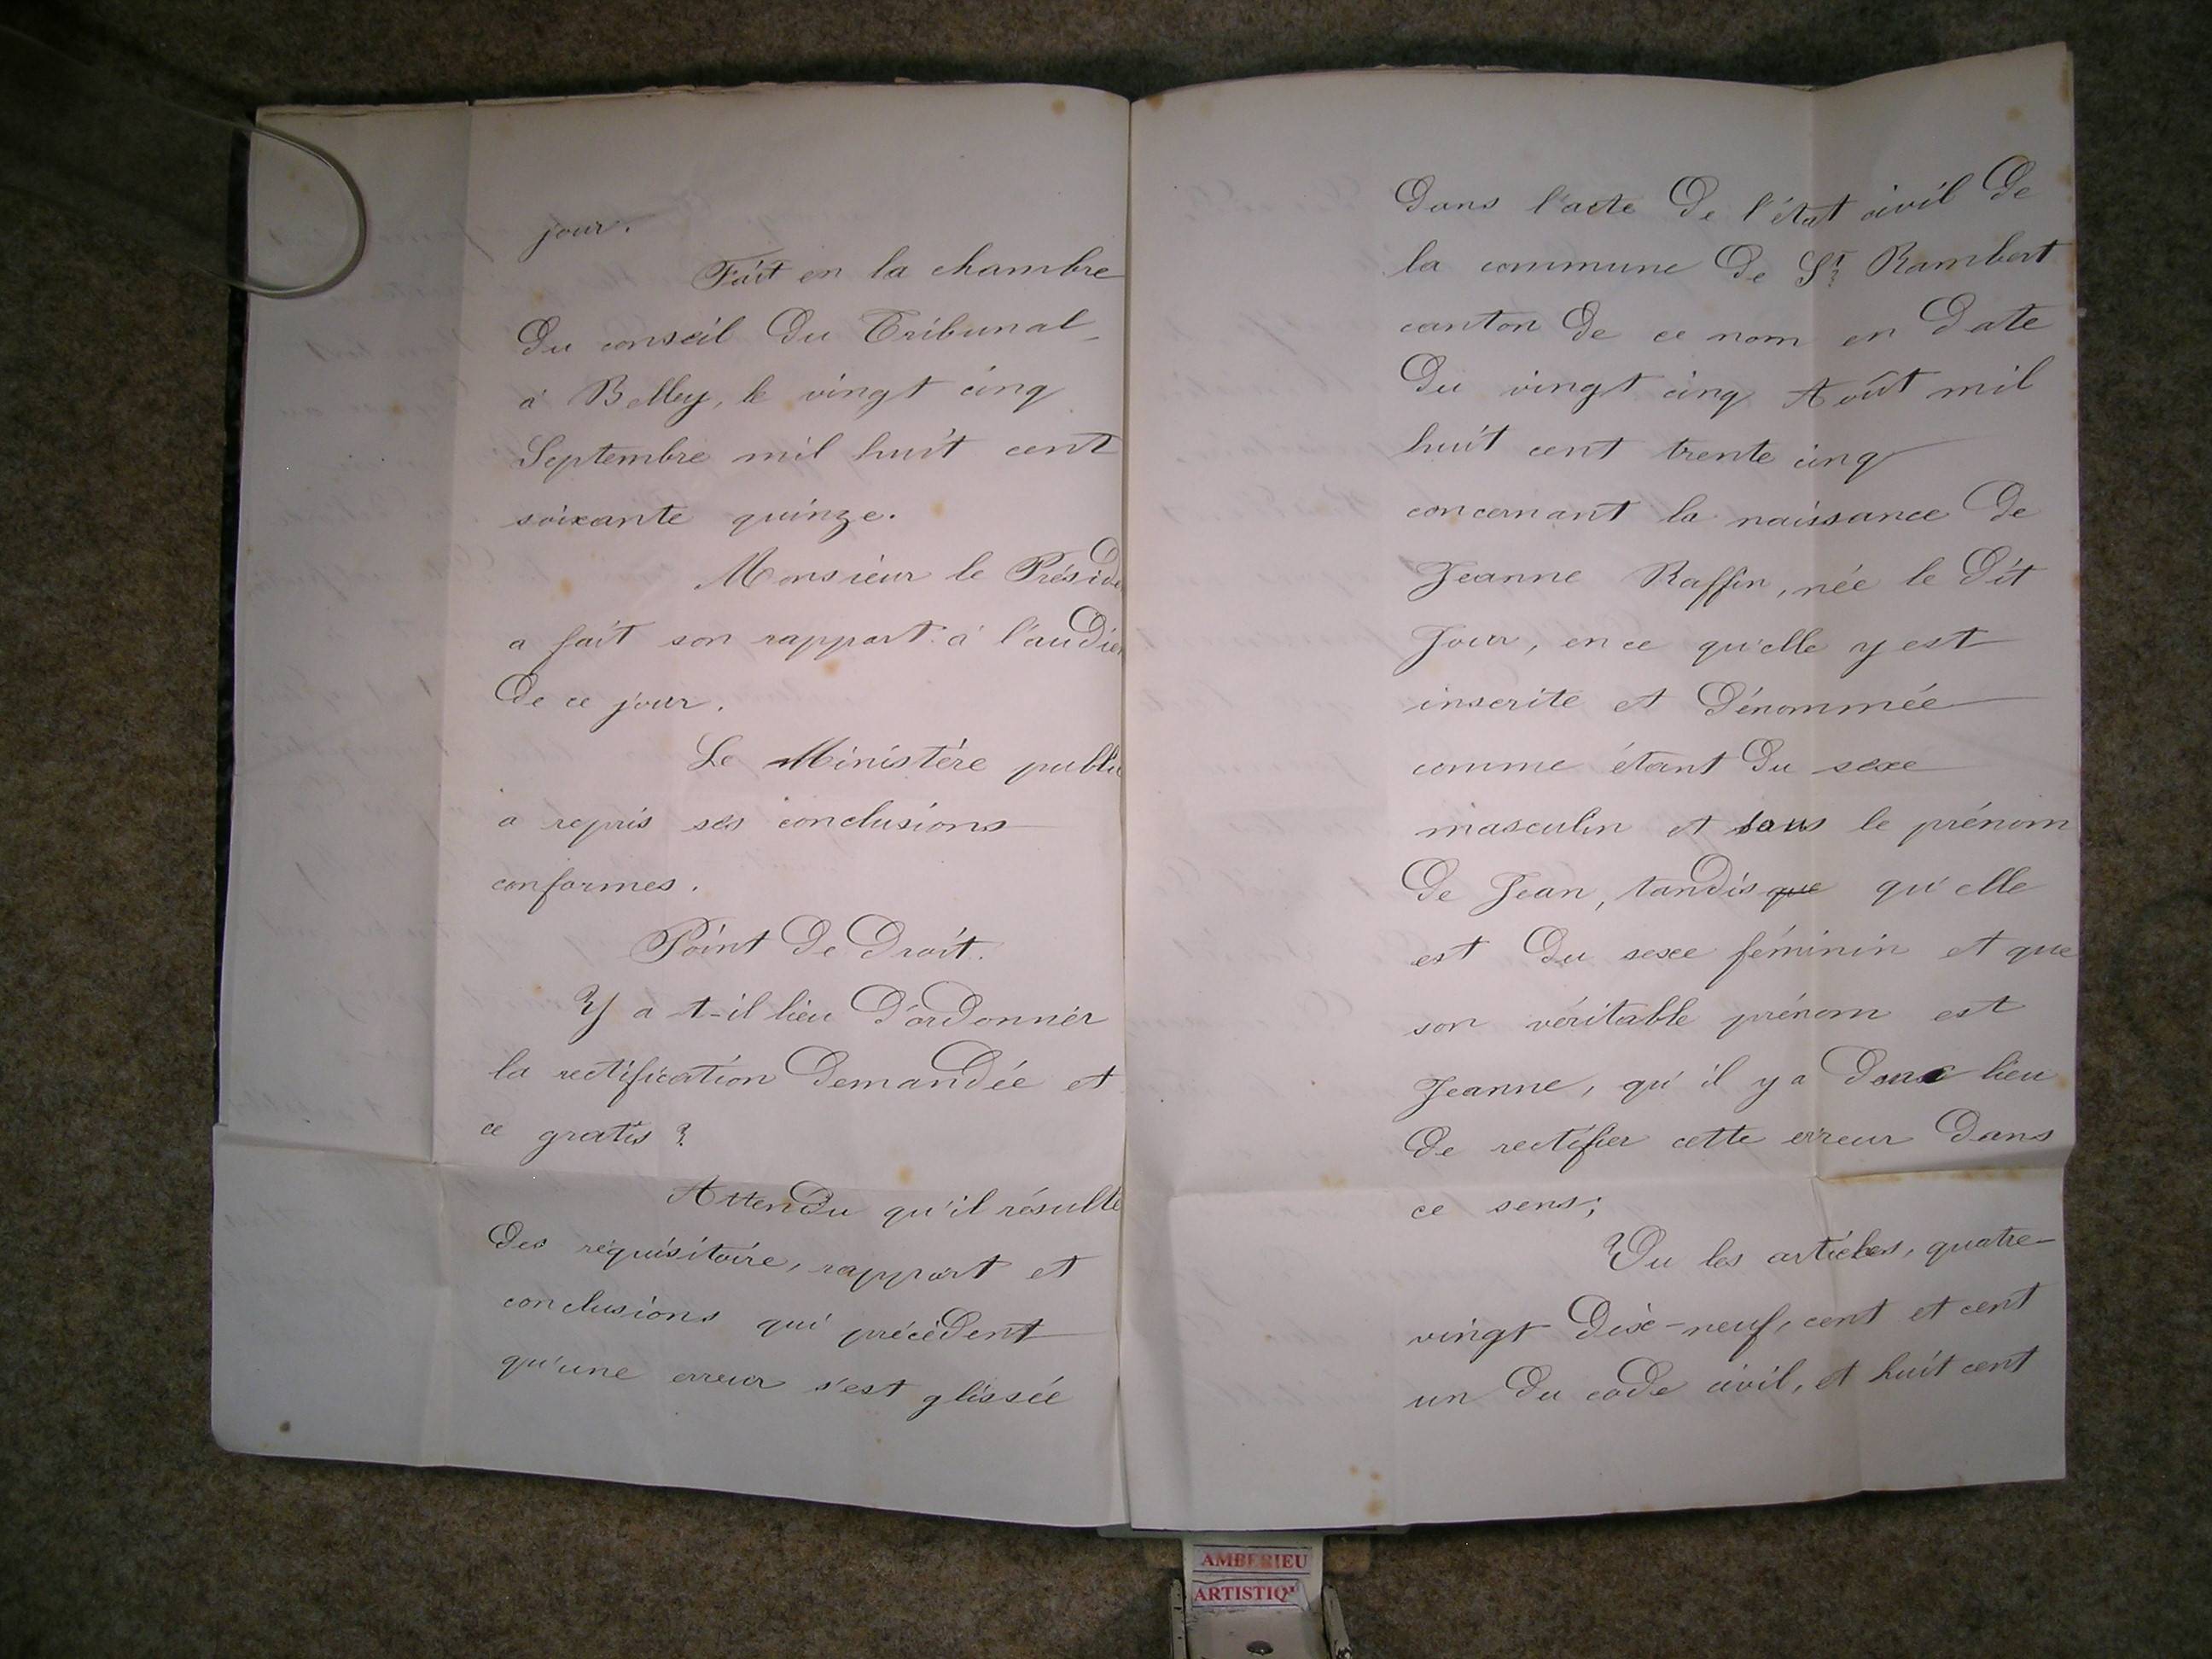 jour.
Fait en la chambre
du conseil du Tribunal
à Belley, le vingt cinq
Septembre mil huit cent
soixante quinze.
Monsieur le Préside
a fait son rapport à l'audien
de ce jour.
Le Ministère public
a repris ses conclusions
conformes.
Point de Droit.
Y a t-il lieu d'ordonner
la rectification demandée et
ce gratis ?
Attendu qu'il résulte
des réquisitoire, rapport et
conclusions qui précèdent
qu'une erreur s'est glissée
dans l'acte de l'état civil de
la commune de St Rambert
canton de ce nom en date
du vingt cinq Août mil
huit cent trente cinq
concernant la naissance de
Jeanne Raffin, née le dit
Jour, en ce qu'elle y est
inscrite et dénommée
comme étant du sexe
masculin et sous le prénom
de Jean, tandis que qu'elle
est du sexe féminin et que
son véritable prénom est
Jeanne, qu'il y a donc lieu
de rectifier cette erreur dans
ce sens;
Vu les articles, quatre-
vingt dix-neuf, cent et cent
un du code civil, et huit cent
AMBERIEU
ARTISTIQ